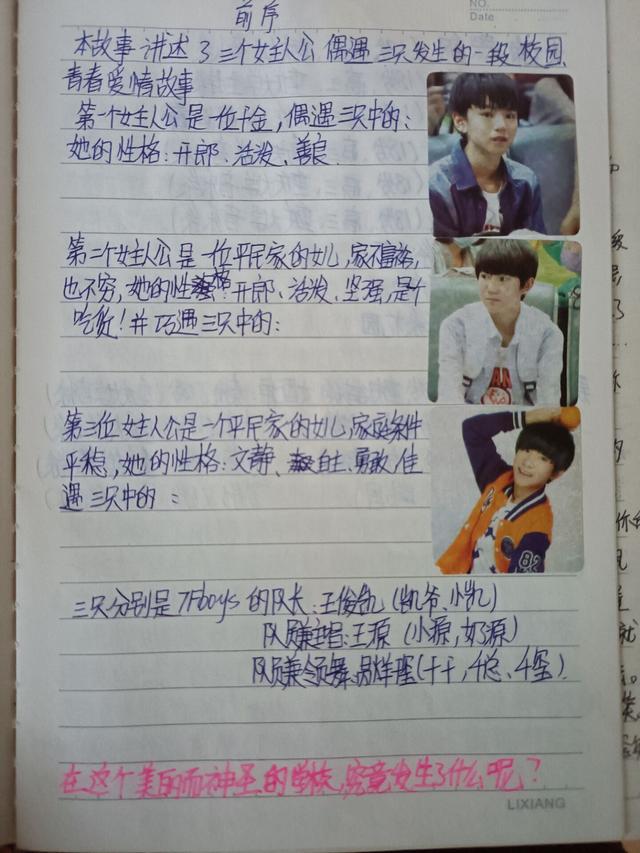 前序
NO.
Date
本故事讲述了三个女主人公偶遇三只发生的一段校园
青春爱情故事
第一个女主人公是一位千金，偶遇三只中的：
她的性格：开郎、活泼、善良
第二个女主人公是一位平民家的女儿，家不富裕，
也不穷，她的性格：开郎、活泼、坚强，是个
吃货！并巧遇三只中的：
第三位女主人公是一个平民家的女儿，家庭条件
平稳，她的性格：文静、自主、勇敢，佳
遇三只中的：
三只分别是TFboys的队长：王俊凯（凯爷、小凯）
队员兼主唱：王源（小源，奶源）
队员兼领舞：易烊千玺（千千，千总、千玺）
在这个美丽而神圣的学校，究竟发生了什么呢？
LIXIANG